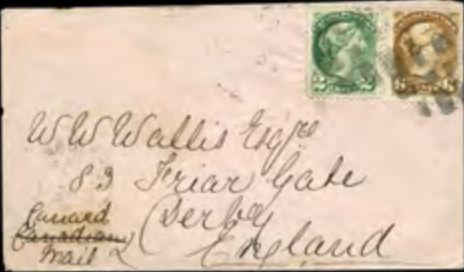 2 CENTS 2
6 CENTS 6
W W Wallis Esqre
83 Friar Gate
Derby
England
Cunard
Canadian
Mail